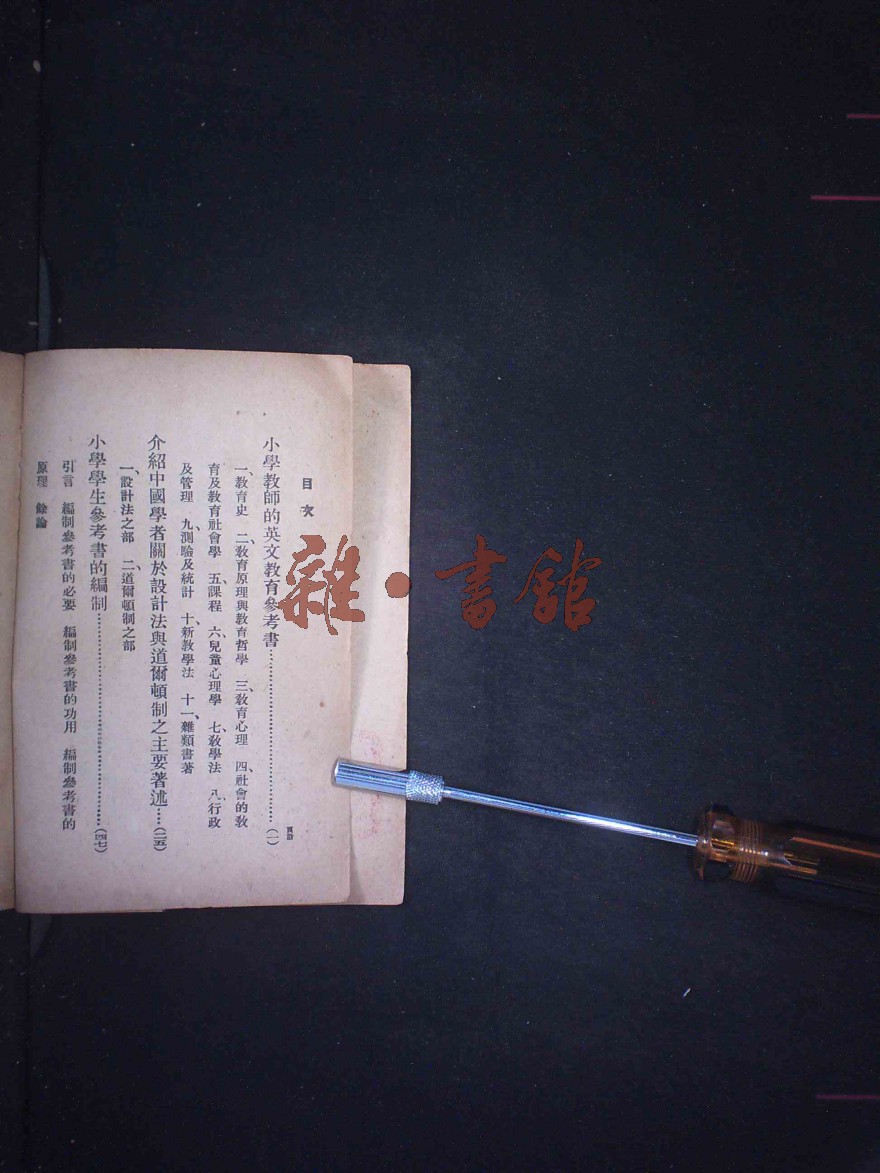 目次
頁數
小學教師的英文教育參考書……(一)
一、教育史 二、教育原理與教育哲學 三、教育心理 四、社會的教
育及教育社會學 五、課程 六、兒童心理學 七、教學法 八、行政
及管理 九、測驗及統計 十、新教學法 十一、雜類書著
介紹中國學者關於設計法與道爾頓制之主要著述……(三五)
一、設計法之部 二、道爾頓制之部
小學學生參考書的編制……(四七)
引言 編制參考書的必要 編制參考書的功用 編制參考書的
原理 餘論
雜·書館